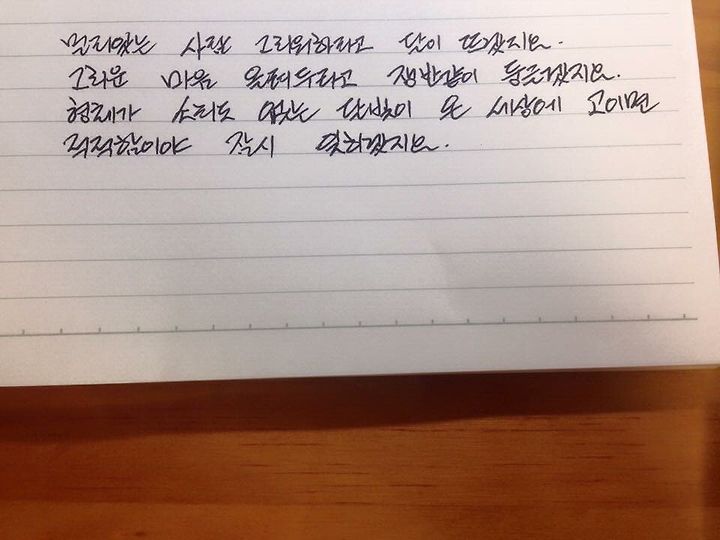 멀리있는 사람 그리워하라고 달이 뜨겠지요.
그리운 마음 올려두라고 쟁반같이 둥글겠지요.
형체가 소리도 없는 달빛이 온 세상에 고이면
적적함이야 잠시 덜하겠지요.